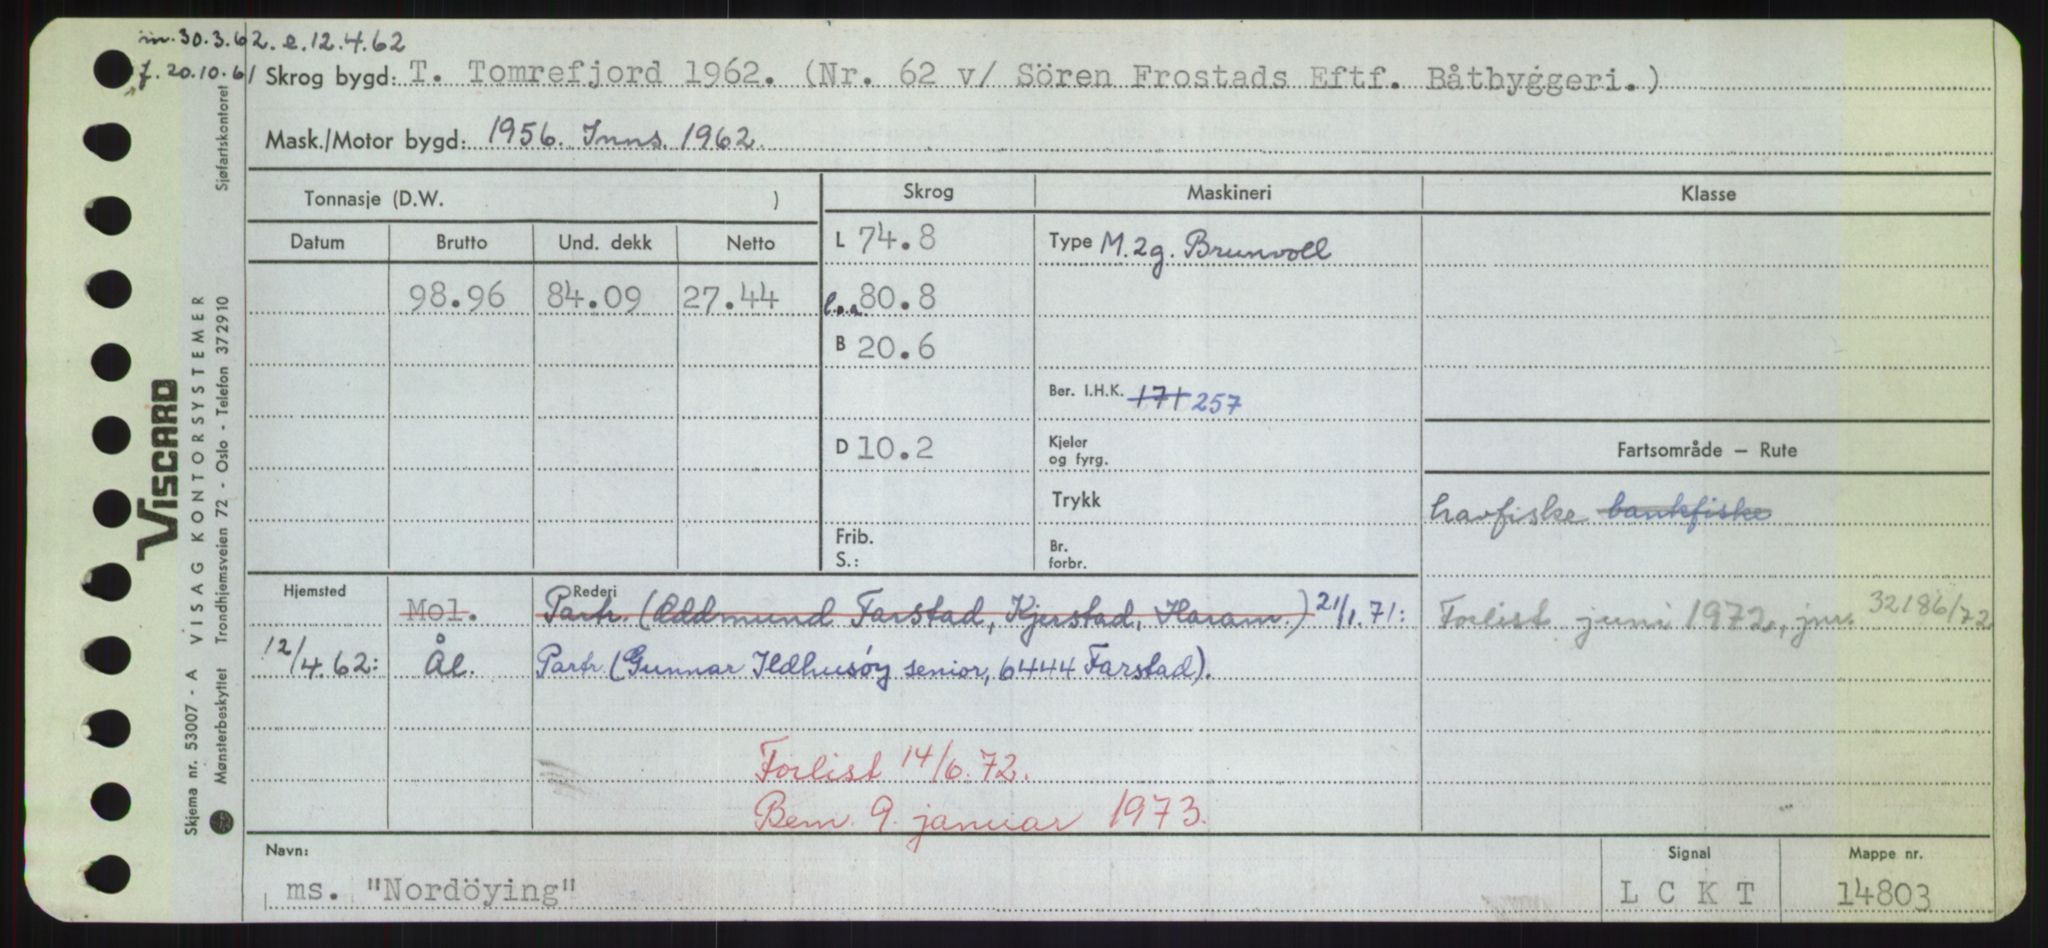 m. 30.3.62. e. 12.4.62
f. 20.10.61 Skrog bygd: T. Tomrefjord 1962. (Nr. 62 v/ Sören Frostads Eftf. Båtbyggeri.)
Mask./Motor bygd: 1956. Inns. 1962.
Tonnasje (D.W. ) Skrog Maskineri Klasse
Datum Brutto Und. dekk Netto L 74.8 Type M. 2g. Brunvoll
98.96 84.09 27.44 l.o.a 80.8
B 20.6
Ber. I.H.K. 171 257
D 10.2 Kjeler
og fyrg.
Fartsområde – Rute
Trykk
havfiske bankfiske
Frib.
S.:
Br.
forbr.
Hjemsted Rederi
Mol. Partr. (Oddmund Farstad, Kjerstad, Haram.) 21/1.71:
Forlist juni 1972, jnr. 32186/72
12/4.62: Ål. Partr. (Gunnar Ildhusøy senior, 6444 Farstad).
Forlist 14/6.72.
Bem. 9. januar 1973.
Navn: Signal Mappe nr.
ms. "Nordöying" L C K T 14803
VISCARD
Skjema nr. 53007 - A VISAG KONTORSYSTEMER
Mønsterbeskyttet Trondhjemsveien 72 - Oslo - Telefon 372910 Sjøfartskontoret